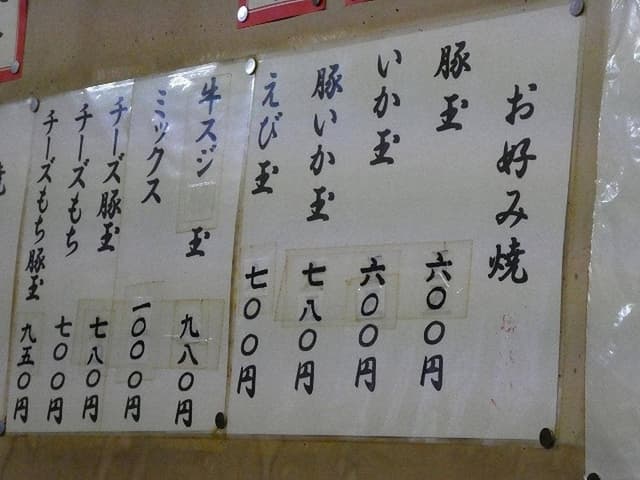 お好み焼
豚玉 六〇〇円
いか玉 六〇〇円
豚いか玉 七八〇円
えび玉 七〇〇円
牛スジ玉 九八〇円
ミックス 一〇〇〇円
チーズ豚玉 七八〇円
チーズもち 七〇〇円
チーズもち豚玉 九五〇円
焼